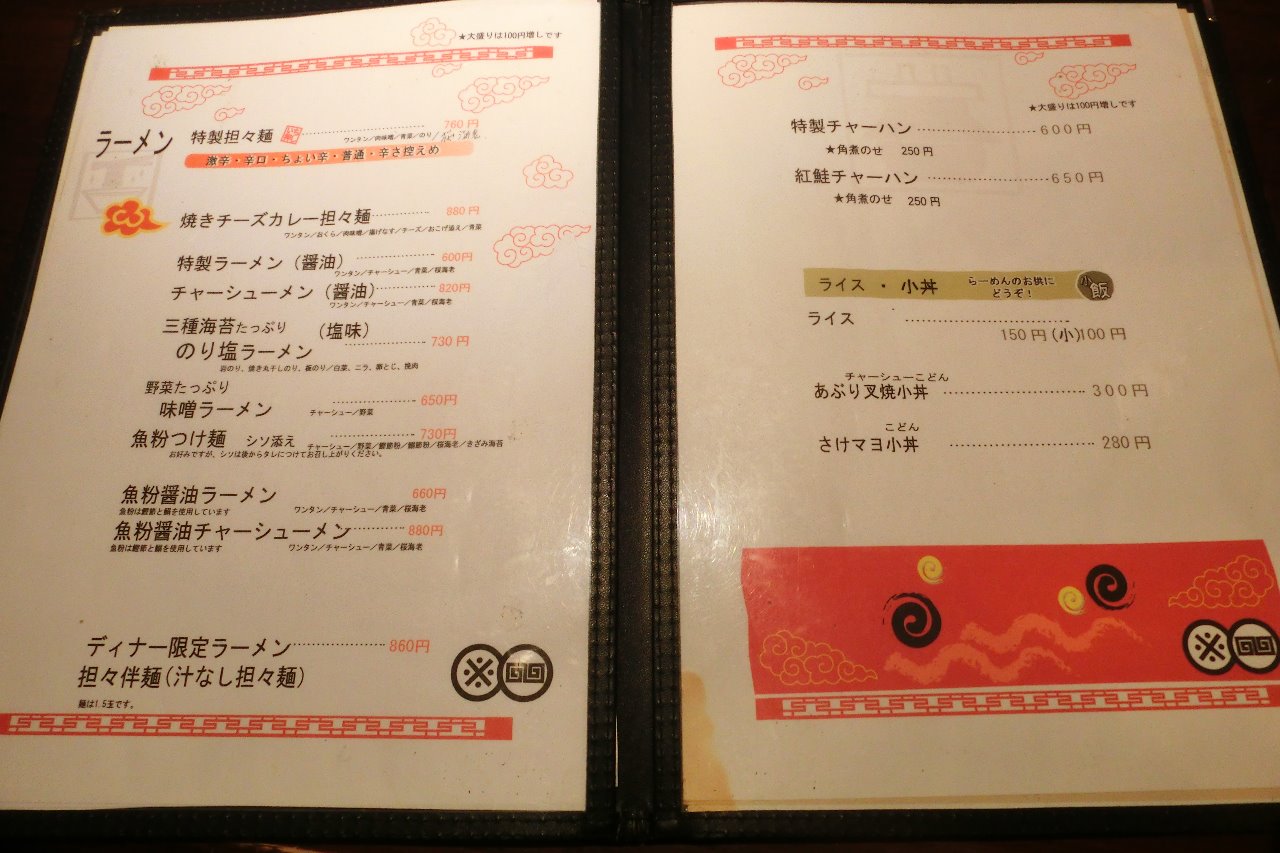 ★大盛りは100円増しです
ラーメン 特製担々麺 760円
ワンタン／肉味噌／青菜／のり／
激辛・辛口・ちょい辛・普通・辛さ控えめ
焼きチーズカレー担々麺 880円
ワンタン／おくら／肉味噌／揚げなす／チーズ／おこげ添え／青菜
特製ラーメン（醤油） 600円
ワンタン／チャーシュー／青菜／桜海老
チャーシューメン（醤油） 820円
ワンタン／チャーシュー／青菜／桜海老
三種海苔たっぷり （塩味）
のり塩ラーメン 730円
岩のり、焼き丸干しのり、板のり／白菜、ニラ、卵とじ、挽肉
野菜たっぷり
味噌ラーメン 650円
チャーシュー／野菜
魚粉つけ麺 シソ添え 730円
チャーシュー／野菜／鰹節粉／鯛節粉／桜海老／きざみ海苔
お好みですが、シソは後からタレにつけてお召し上がりください。
魚粉醤油ラーメン 660円
魚粉は鰹節と鯛を使用しています ワンタン／チャーシュー／青菜／桜海老
魚粉醤油チャーシューメン 880円
魚粉は鰹節と鯛を使用しています ワンタン／チャーシュー／青菜／桜海老
ディナー限定ラーメン 860円
担々伴麺（汁なし担々麺）
麺は1.5玉です。
★大盛りは100円増しです
特製チャーハン 600円
★角煮のせ 250円
紅鮭チャーハン 650円
★角煮のせ 250円
ライス ・ 小丼 らーめんのお供に
どうぞ！
小飯
ライス
150円(小)100円
チャーシューこどん
あぶり叉焼小丼 300円
こどん
さけマヨ小丼 280円